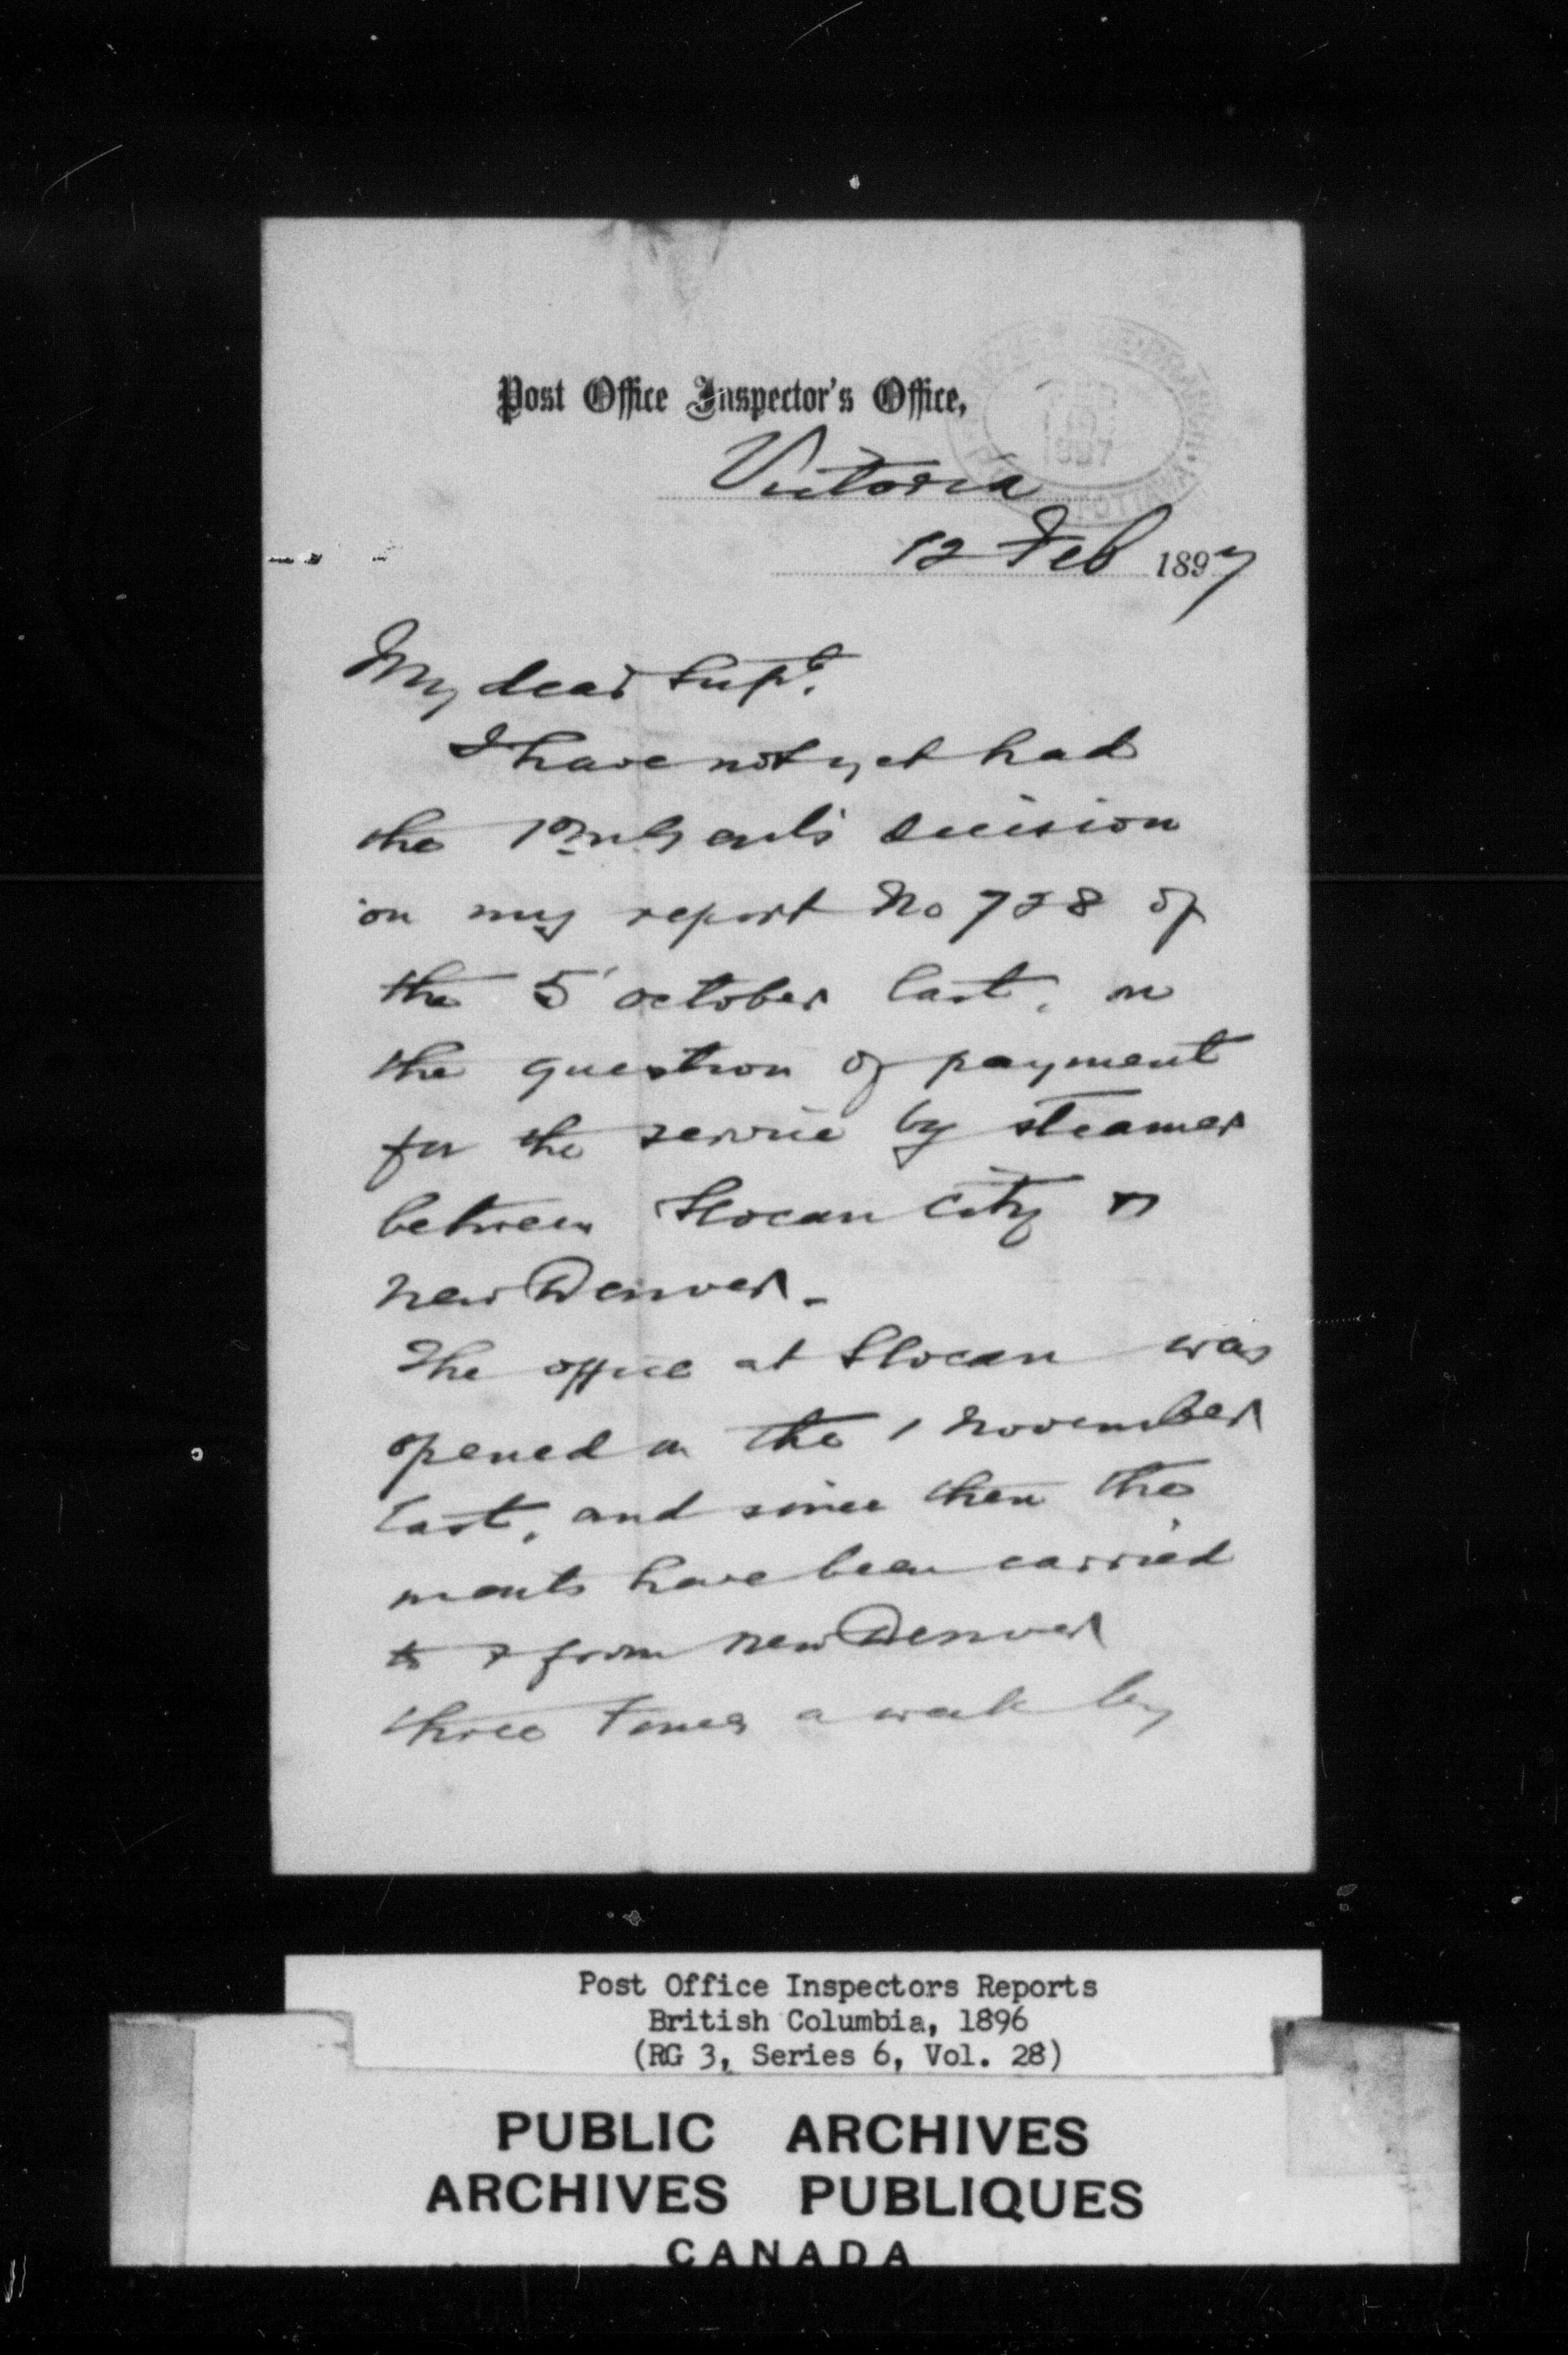 Post Office Inspector's Office,
Victoria
12 Feb 1897
OTTAWA
1897
My dear Supt.
I have not yet had
the P.M. Genl's decision
on my report No 728 of
the 5' October last, on
the question of payment
for the service by steamer
between Slocan City &
New Denver.
The office at Slocan was
opened on the 1 November
last, and since then the
mails have been carried
to & from New Denver
three times a week by
Post Office Inspectors Reports
British Columbia, 1896
(RG 3, Series 6, Vol. 28)
PUBLIC ARCHIVES
ARCHIVES PUBLIQUES
CANADA